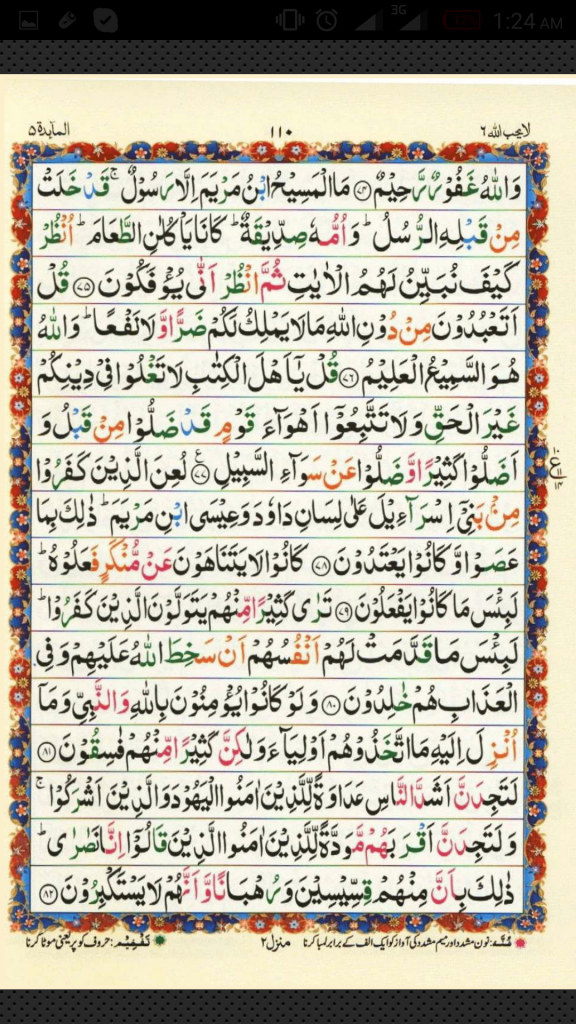 3G 12% 1:24 AM
لايحب الله ٦ ١١٠ المآىدة ٥
وَاللّٰهُ غَفُوْرٌ رَّحِيْمٌ ﴿٧٤﴾ مَا الْمَسِيْحُ ابْنُ مَرْيَمَ اِلَّا رَسُوْلٌ ۚ قَدْ خَلَتْ
مِنْ قَبْلِهِ الرُّسُلُ ؕ وَاُمُّهٗ صِدِّيْقَةٌ ؕ كَانَا يَاْكُلٰنِ الطَّعَامَ ؕ اُنْظُرْ
كَيْفَ نُبَيِّنُ لَهُمُ الْاٰيٰتِ ثُمَّ انْظُرْ اَنّٰى يُؤْفَكُوْنَ ﴿٧٥﴾ قُلْ
اَتَعْبُدُوْنَ مِنْ دُوْنِ اللّٰهِ مَا لَا يَمْلِكُ لَكُمْ ضَرًّا وَّلَا نَفْعًا ؕ وَاللّٰهُ
هُوَ السَّمِيْعُ الْعَلِيْمُ ﴿٧٦﴾ قُلْ يٰۤاَهْلَ الْكِتٰبِ لَا تَغْلُوْا فِيْ دِيْنِكُمْ
غَيْرَ الْحَقِّ وَلَا تَتَّبِعُوْۤا اَهْوَآءَ قَوْمٍ قَدْ ضَلُّوْا مِنْ قَبْلُ وَ
اَضَلُّوْا كَثِيْرًا وَّضَلُّوْا عَنْ سَوَآءِ السَّبِيْلِ ﴿٧٧﴾ لُعِنَ الَّذِيْنَ كَفَرُوْا
مِنْۢ بَنِيْۤ اِسْرَآءِيْلَ عَلٰى لِسَانِ دَاوٗدَ وَعِيْسَى ابْنِ مَرْيَمَ ؕ ذٰلِكَ بِمَا
عَصَوْا وَّكَانُوْا يَعْتَدُوْنَ ﴿٧٨﴾ كَانُوْا لَا يَتَنَاهَوْنَ عَنْ مُّنْكَرٍ فَعَلُوْهُ ؕ
لَبِئْسَ مَا كَانُوْا يَفْعَلُوْنَ ﴿٧٩﴾ تَرٰى كَثِيْرًا مِّنْهُمْ يَتَوَلَّوْنَ الَّذِيْنَ كَفَرُوْا ؕ
لَبِئْسَ مَا قَدَّمَتْ لَهُمْ اَنْفُسُهُمْ اَنْ سَخِطَ اللّٰهُ عَلَيْهِمْ وَفِي
الْعَذَابِ هُمْ خٰلِدُوْنَ ﴿٨٠﴾ وَلَوْ كَانُوْا يُؤْمِنُوْنَ بِاللّٰهِ وَالنَّبِيِّ وَمَاۤ
اُنْزِلَ اِلَيْهِ مَا اتَّخَذُوْهُمْ اَوْلِيَآءَ وَلٰكِنَّ كَثِيْرًا مِّنْهُمْ فٰسِقُوْنَ ﴿٨١﴾
لَتَجِدَنَّ اَشَدَّ النَّاسِ عَدَاوَةً لِّلَّذِيْنَ اٰمَنُوا الْيَهُوْدَ وَالَّذِيْنَ اَشْرَكُوْا ۚ
وَلَتَجِدَنَّ اَقْرَبَهُمْ مَّوَدَّةً لِّلَّذِيْنَ اٰمَنُوا الَّذِيْنَ قَالُوْۤا اِنَّا نَصٰرٰى ؕ
ذٰلِكَ بِاَنَّ مِنْهُمْ قِسِّيْسِيْنَ وَرُهْبَانًا وَّاَنَّهُمْ لَا يَسْتَكْبِرُوْنَ ﴿٨٢﴾
١٠ ع ١١ ١٤
غُنّہ: نون مشدد اور میم مشدد کی آواز کو ایک الف کے برابر لمبا کرنا منزل ٢ تفخیم: حروف کو پُر یعنی موٹا کرنا